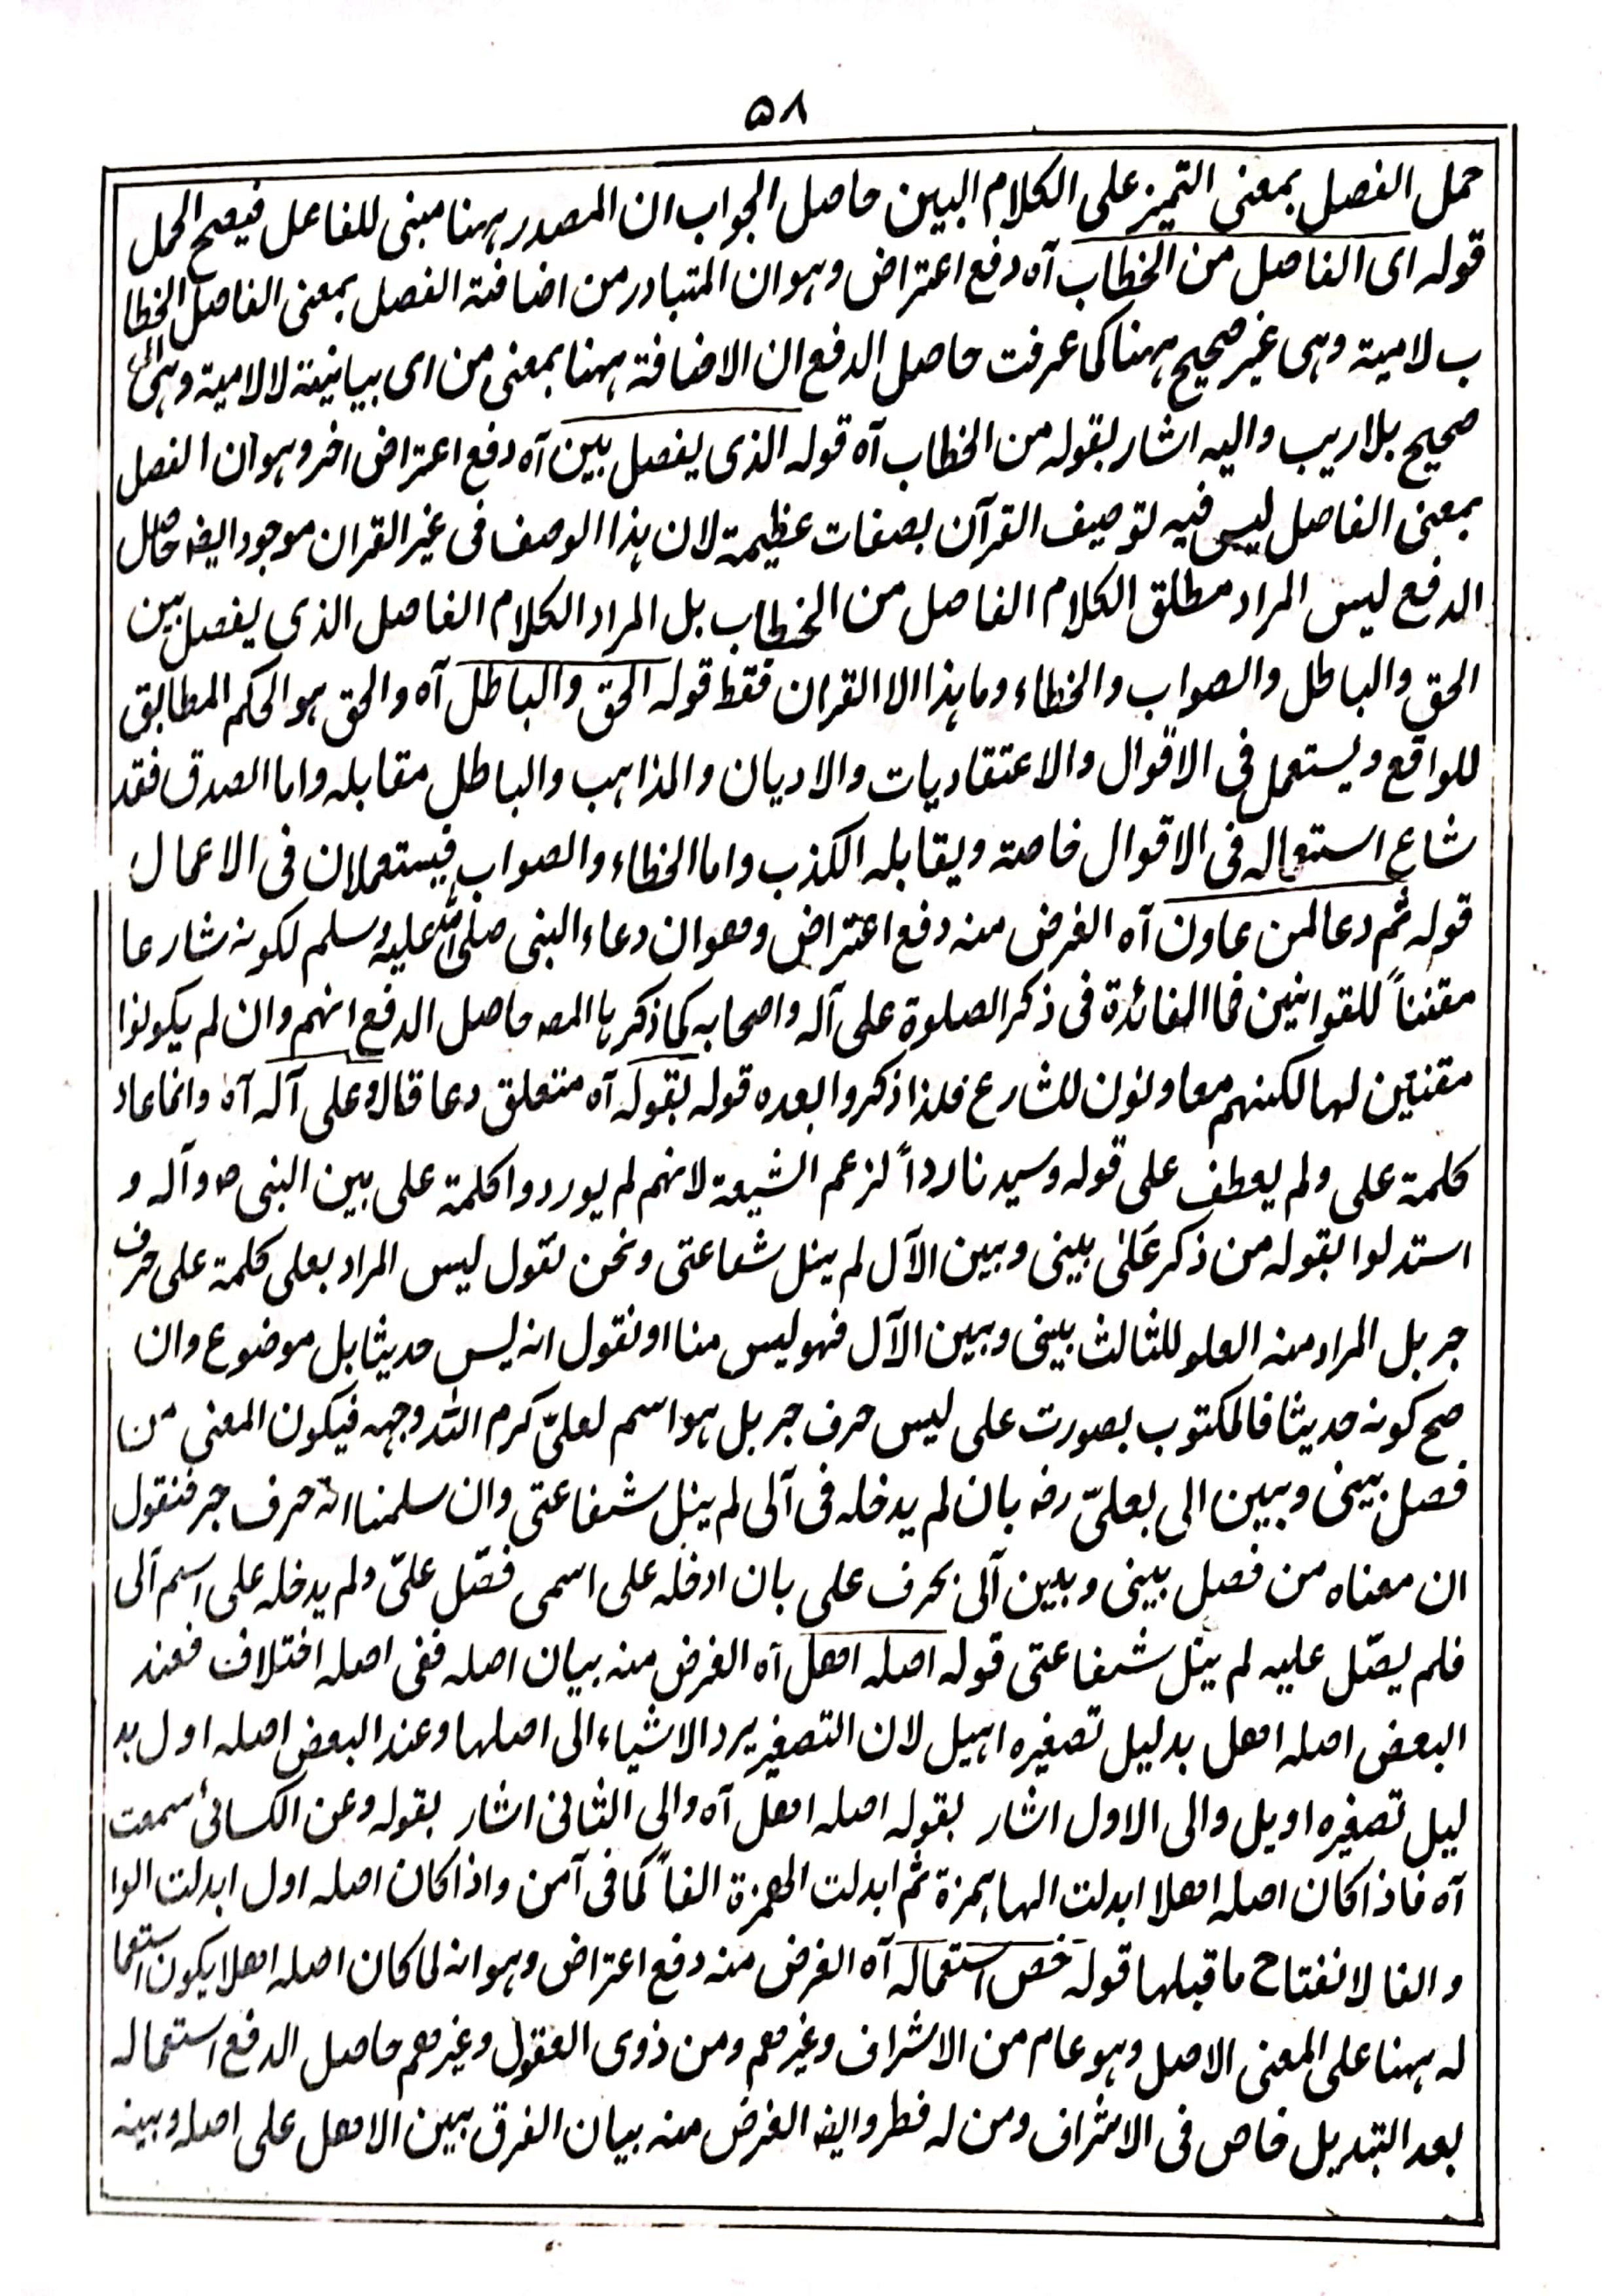 ۵۸
حمل الفصل بمعنى التميز على الكلام البين حاصل الجواب ان المصدر ههنا مبنى للفاعل فيصح الحمل
قوله اى الفاصل من الخطاب آه دفع اعتراض وهو ان المتبادر من اضافة الفصل بمعنى الفاصل الخطا
ب لامية وهى غير صحيح ههنا كى عرفت حاصل الدفع ان الاضافة ههنا بمعنى من اى بيانية لا لامية وهى
صحيح بلا ريب واليه اشار بقوله من الخطاب آه قوله الذى يفصل بين آه دفع اعتراض اخر وهو ان الفصل
بمعنى الفاصل ليس فيه توصيف القرآن بصفات عظيمة لان هذا الوصف فى غير القران موجود ايضہ حاصل
الدفع ليس المراد مطلق الكلام الفاصل من الخطاب بل المراد الكلام الفاصل الذى يفصل بين
الحق والباطل والصواب والخطاء وما هذا الا القران فقط قوله الحق والباطل آه والحق هو الحكم المطابق
للواقع ويستعمل فى الاقوال والاعتقاديات والاديان والمذاهب والباطل مقابله واما الصدق فقد
شاع استعماله فى الاقوال خاصة ويقابله الكذب واما الخطاء والصواب فيستعملان فى الاعمال
قوله ثم دعا لمن عاون آه الغرض منه دفع اعتراض وهو ان دعاء النبى صلى الله عليه وسلم لكونه شارعا
مقننا للقوانين فما الفائدة فى ذكر الصلوة على آله واصحابه كما ذكرها المصہ حاصل الدفع انهم وان لم يكونوا
مقننين لها لكنهم معاونون للشارع فلذا ذكروا بعده قوله بقوله آه متعلق دعا قال وعلى آله آه وانما عاد
كلمة على ولم يعطف على قوله وسيدنا رداً لزعم الشيعة لانهم لم يوردوا كلمة على بين النبى ص وآله و
استدلوا بقوله من ذكر عَلٰى بينى وبين الآل لم ينل شفاعتى ونحن نقول ليس المراد بعلى كلمة على حرف
جر بل المراد منه العلو للثالث بينى وبين الآل فهو ليس منا او نقول انه ليس حديثا بل موضوع وان
صح كونه حديثا فالمكتوب بصورت على ليس حرف جر بل هو اسم لعلىّ كرم الله وجهه فيكون المعنى من
فصل بينى وبين الى بعلىّ رضہ بان لم يدخله فى آلى لم ينل شفاعتى وان سلمنا انه حرف جر فنقول
ان معناه من فصل بينى وبين آلى بحرف على بان ادخله على اسمى فصّل علىّ ولم يدخله على اسم آلى
فلم يصّل عليه لم ينل شفاعتى قوله اصله اهل آه الغرض منه بيان اصله ففى اصله اختلاف فعند
البعض اصله اهل بدليل تصغيره اهيل لان التصغير يرد الاشياء الى اصلها وعند البعض اصله اول بد
ليل تصغيره اويل والى الاول اشار بقوله اصله اهل آه والى الثانى اشار بقوله وعن الكسائى سمعت
آه فاذا كان اصله اهلا ابدلت الها همزة ثم ابدلت الهمزة الفاً كما فى آمن واذا كان اصله اول ابدلت الوا
و الفا لانفتاح ما قبلها قوله خص استعماله آه الغرض منه دفع اعتراض وهو انه لما كان اصله اهلا يكون استعما
له ههنا على المعنى الاصل وهو عام من الاشراف وغيرهم ومن ذوى العقول وغيرهم حاصل الدفع استعماله
بعد التبديل خاص فى الاشراف ومن له خطر وايضہ الغرض منه بيان الفرق بين الاهل على اصله وبينه